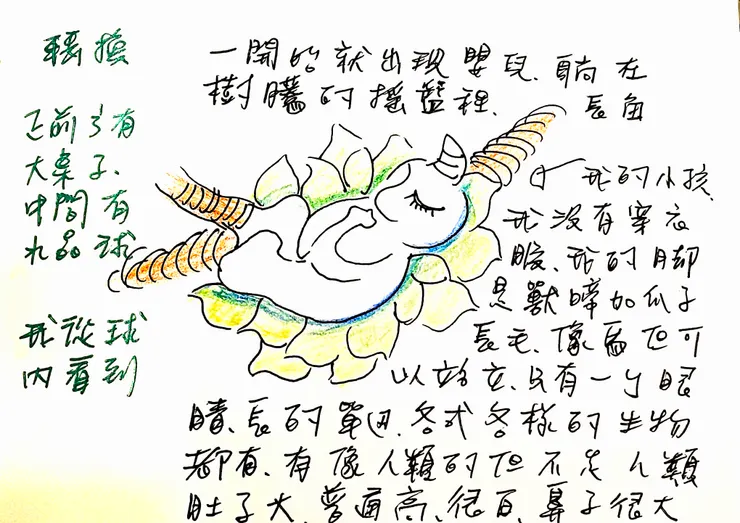 轉換
正前方有
大桌子、
中間有
水晶球
我從球
內看到
一開始就出現嬰兒、躺在
樹藤的搖籃裡、
長角
我的小孩、
我沒有穿衣
服、我的腳
是獸蹄加爪子
長毛、像馬但可
以站立、只有一個眼
睛、長的單迥、各式各樣的生物
都有、有像人類的但不是人類
肚子大、普通高、很白、鼻子很大